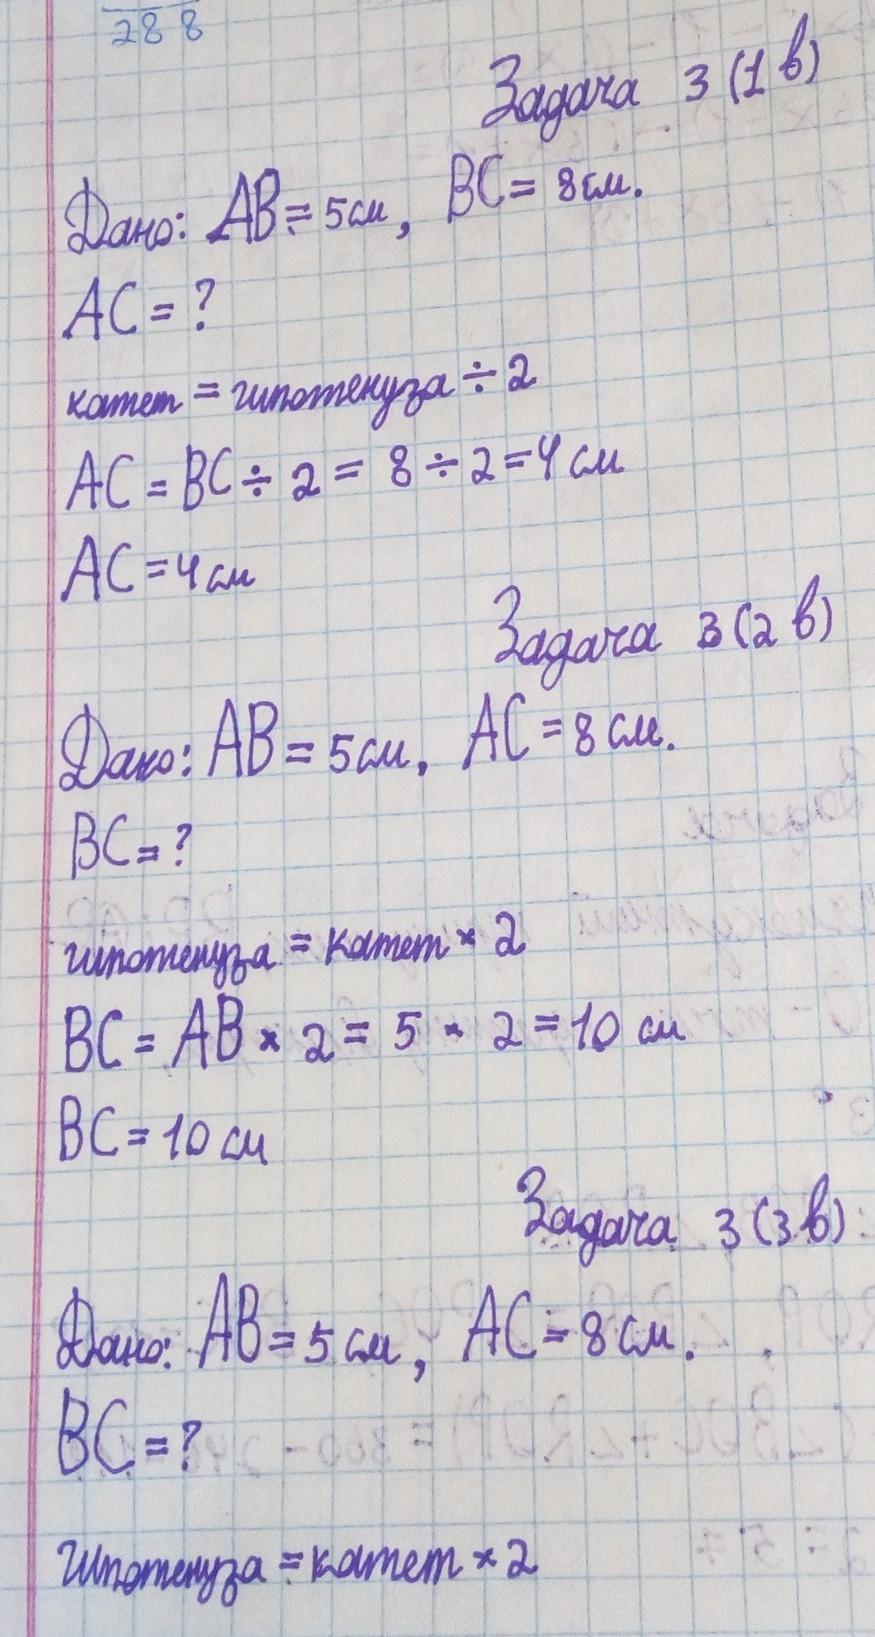 288
Задача 3 (1 в)
Дано: AB = 5 см, BC = 8 см.
AC = ?
катет = гипотенуза ÷ 2
AC = BC ÷ 2 = 8 ÷ 2 = 4 см
AC = 4 см
Задача 3 (2 в)
Дано: AB = 5 см, AC = 8 см.
BC = ?
гипотенуза = катет × 2
BC = AB × 2 = 5 × 2 = 10 см
BC = 10 см
Задача 3 (3 в)
Дано: AB = 5 см, AC = 8 см.
BC = ?
гипотенуза = катет × 2